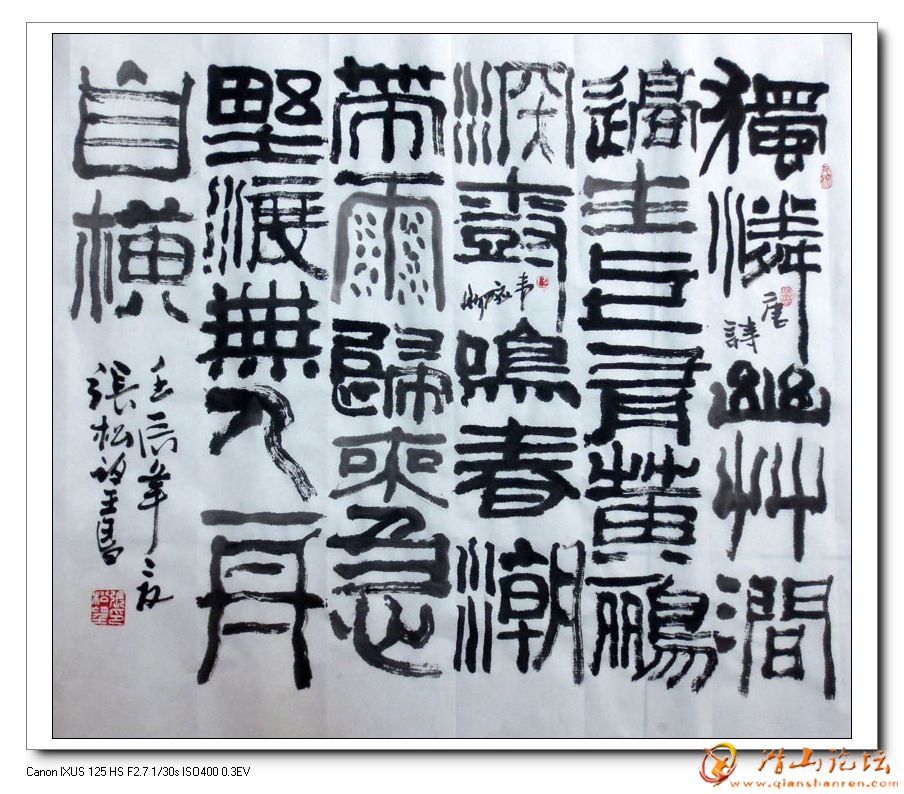 獨憐幽艸澗
邊生上有黃鸝
深尌鳴春潮
帶雨歸來急
野渡無人舟
自橫
唐詩
韋應物
壬辰年
張松望書
Canon IXUS 125 HS F2.7 1/30s ISO400 0.3EV
潜山论坛
www.qianshanren.com